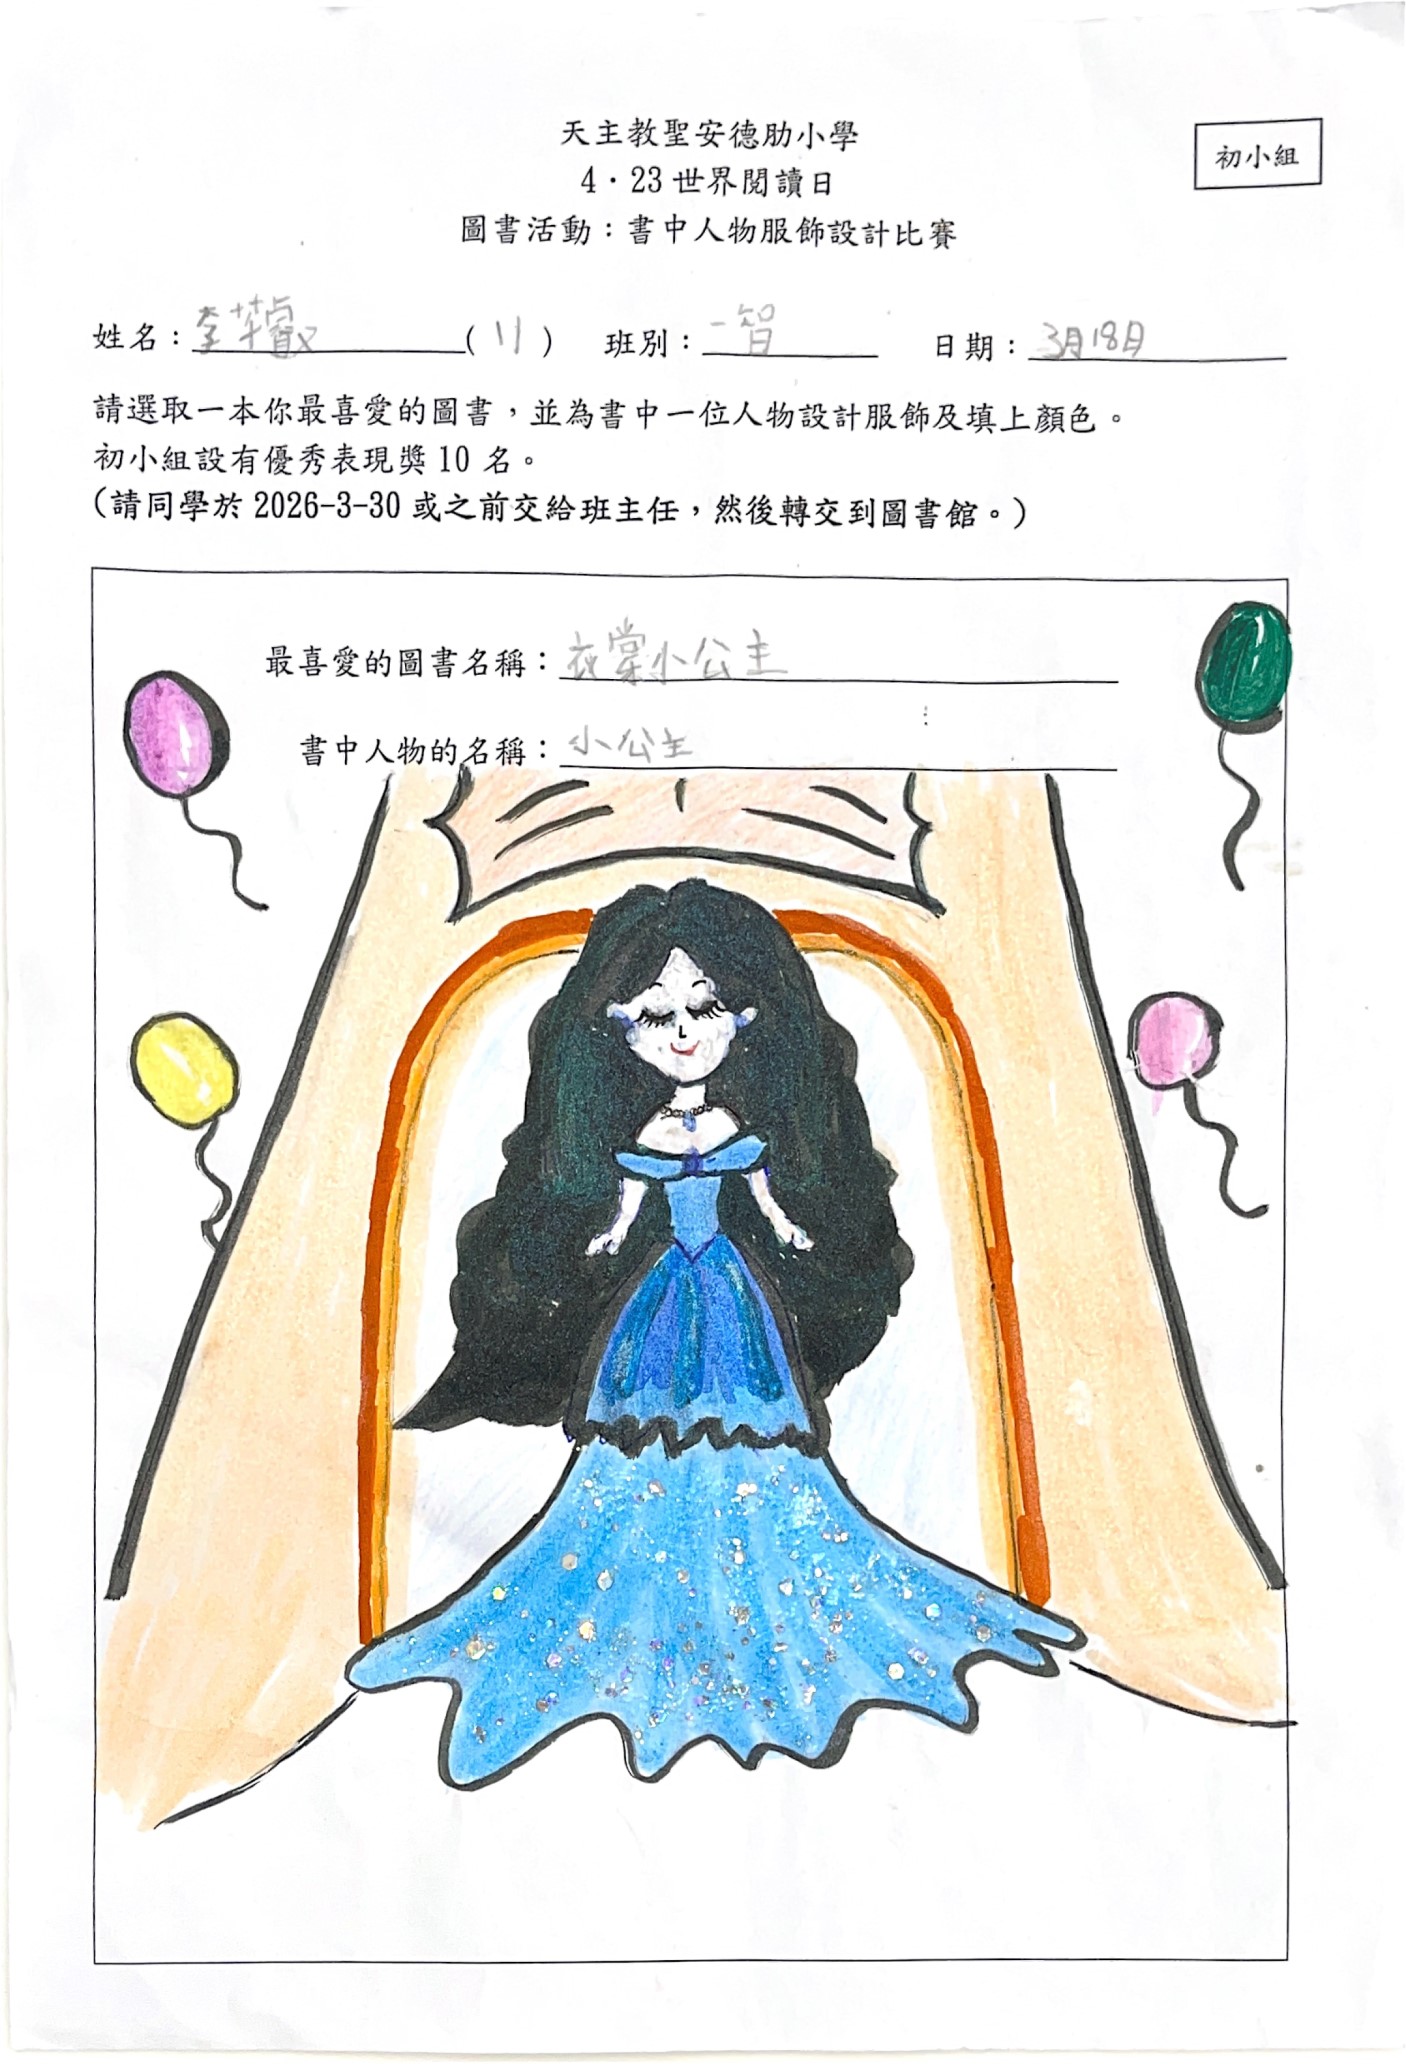 天主教聖安德肋小學
初小組
4·23 世界閱讀日
圖書活動：書中人物服飾設計比賽
姓名：李芊叡 ( 11 ) 班別：一智 日期：3月18日
請選取一本你最喜愛的圖書，並為書中一位人物設計服飾及填上顏色。
初小組設有優秀表現獎 10 名。
(請同學於 2026-3-30 或之前交給班主任，然後轉交到圖書館。)
最喜愛的圖書名稱：衣裳小公主
書中人物的名稱：小公主